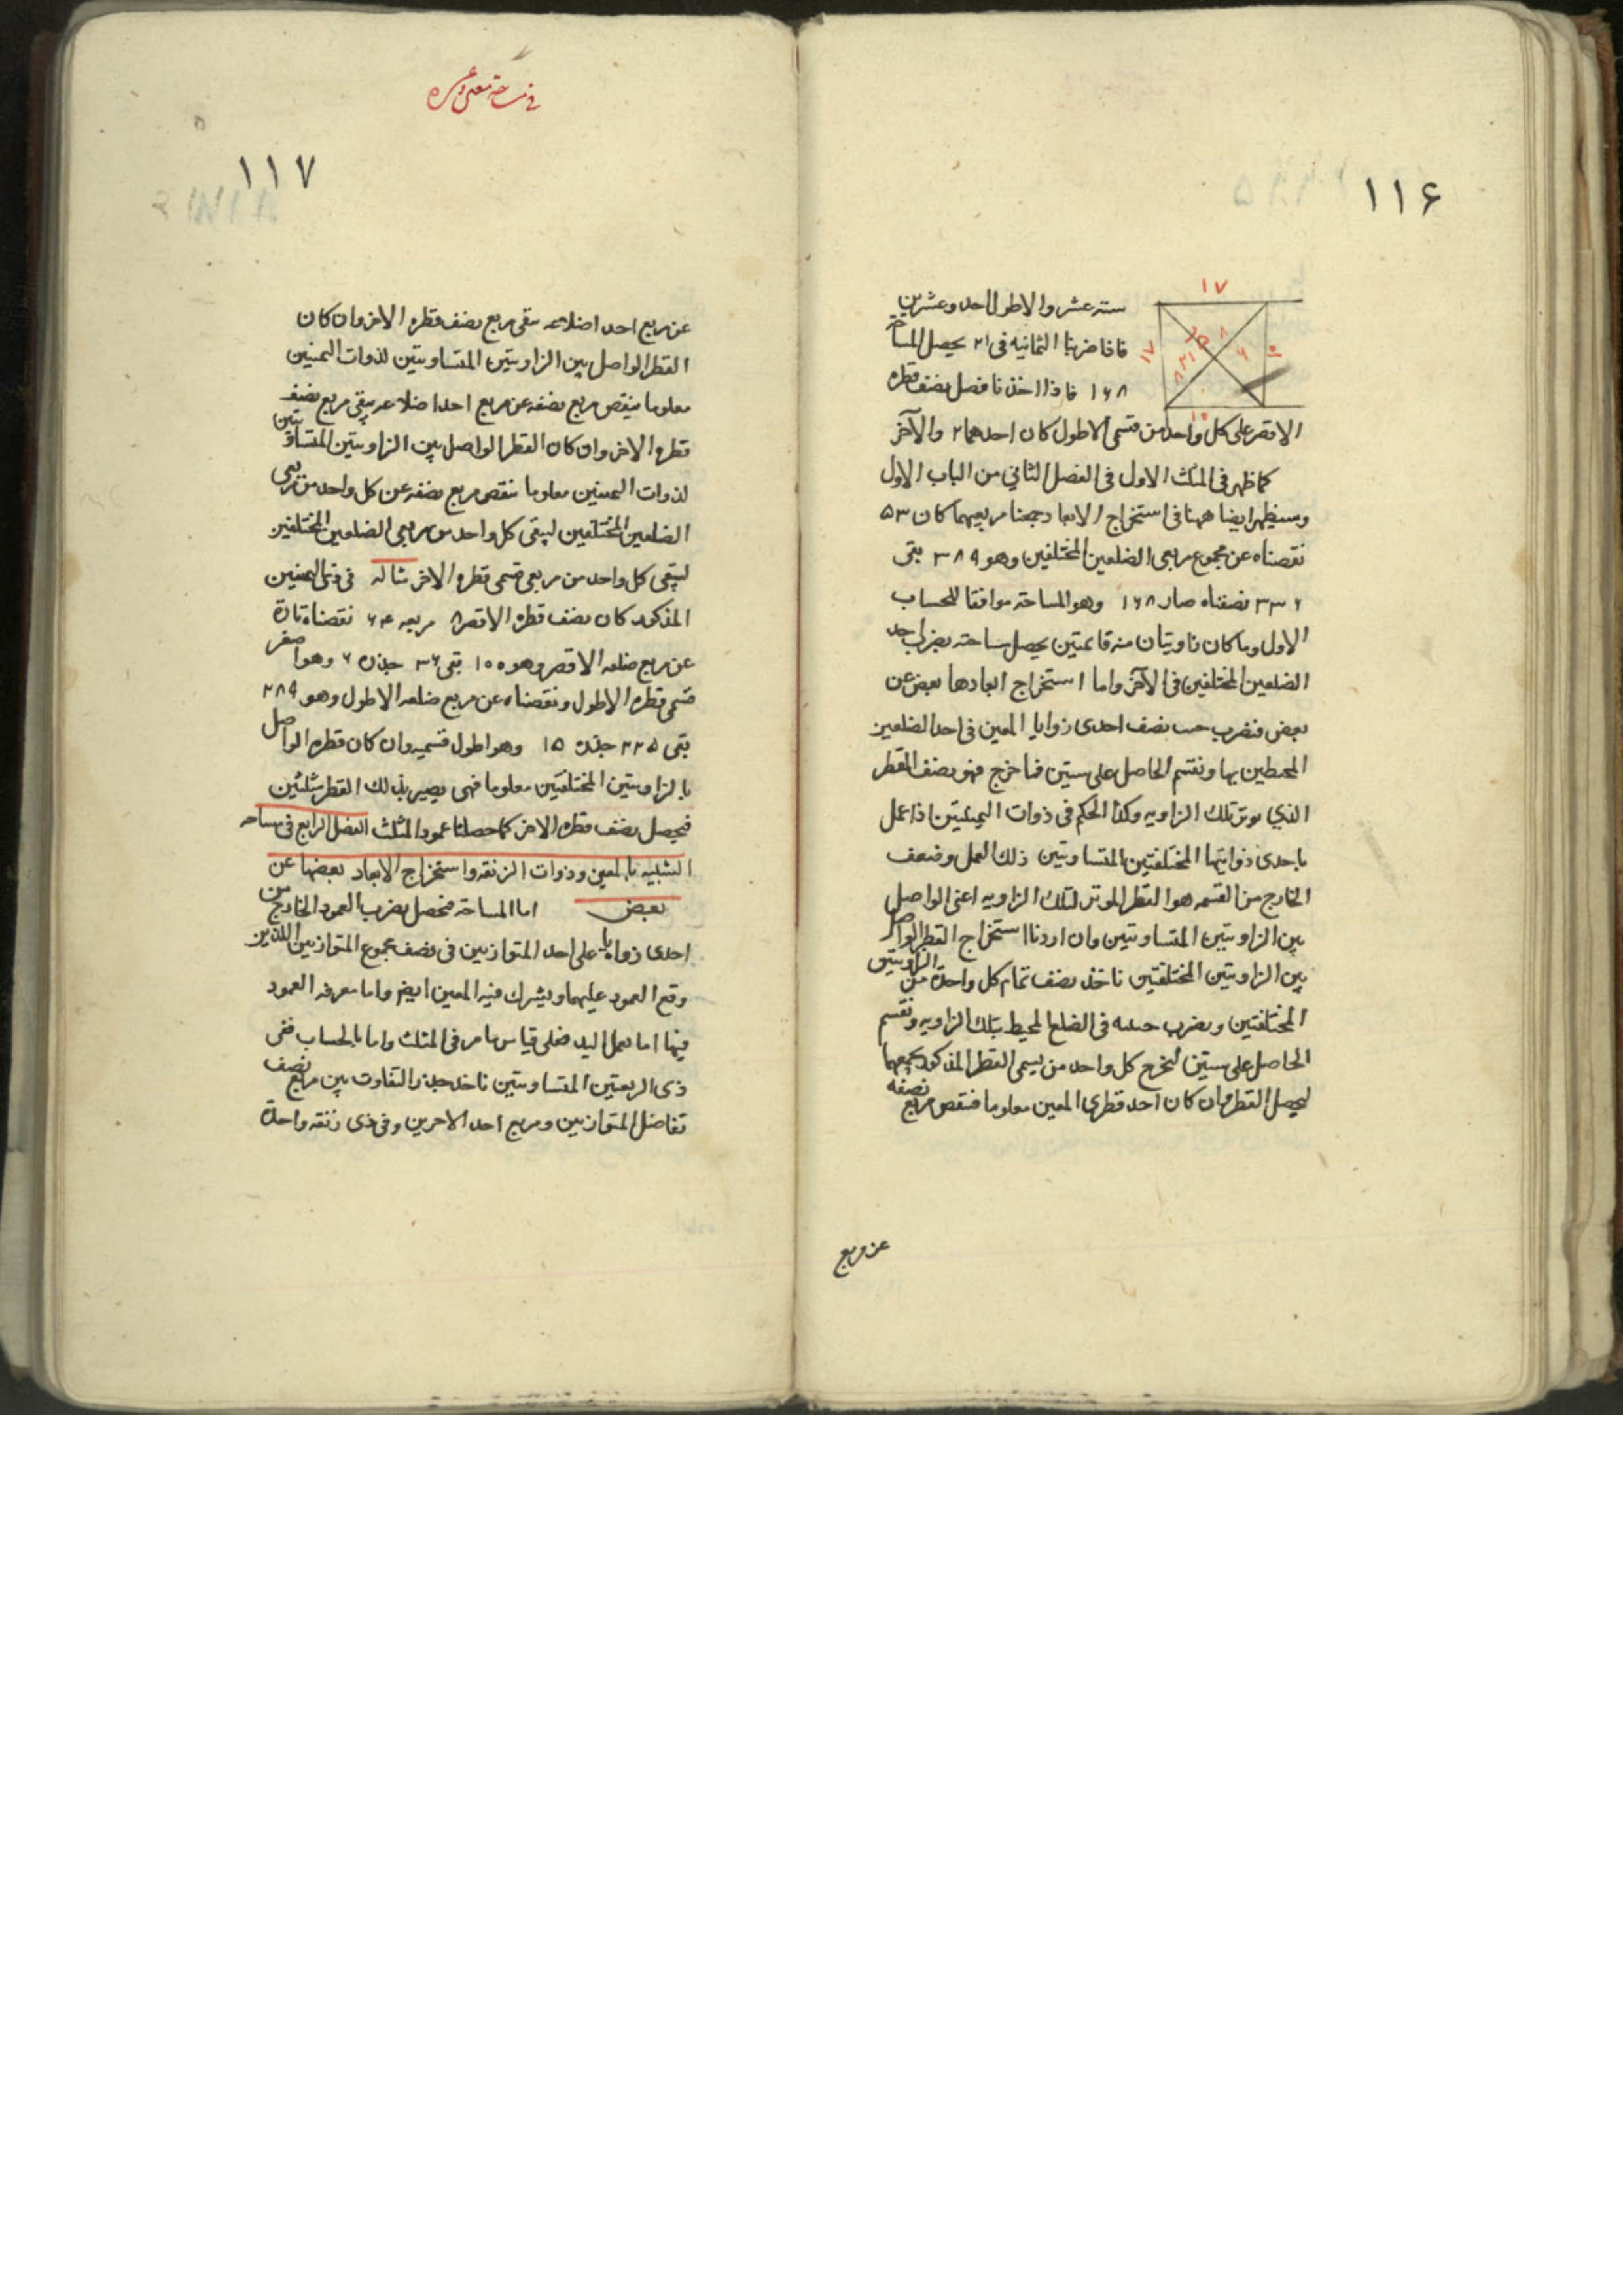 ١١۶
١٧
١٧
١٠
١٠
ستة عشر والاطول احد وعشرين
فاذا ضربنا الثمانية فى ٢١ يحصل المساحة
١٦٨ فاذا اخذنا فصل نصف قطره
الاقصر على كل واحد من قسمى الاطول كان احدهما ٢ والآخر
كما ظهر فى المثلث الاول فى الفصل الثاني من الباب الاول
وسيظهر ايضا ههنا فى استخراج الابعاد جمعنا مربعيهما كان ٥٣
نقصناه عن مجموع مربعى الضلعين المختلفين وهو ٣٨٩ بقى
٣٣٦ نصفناه صار ١٦٨ وهو المساحة موافقا للحساب
الاول وما كان زاويتان منه قائمتين يحصل مساحته بضرب احد
الضلعين المختلفين فى الآخر واما استخراج ابعادها بعض عن
بعض فنضرب جيب نصف احدى زوايا المعين فى احد الضلعين
المحيطين بها ونقسم الحاصل على ستين فما خرج فهو نصف القطر
الذي يوتر تلك الزاويه وكذا الحكم فى ذوات اليمينين اذا عمل
باحدى زوايتيها المختلفتين المتساويتين ذلك العمل وضعف
الخارج من القسمه هو القطر الموتر لتلك الزاويه اعنى الواصل
بين الزاويتين المتساويتين وان اردنا استخراج القطر الواصل
بين الزاويتين المختلفتين ناخذ نصف تمام كل واحدة من الزاويتين
المختلفتين ويضرب جيبه فى الضلع المحيط بتلك الزاويه ونقسم
الحاصل على ستين ليخرج كل واحد من قسمى القطر المذكور نجمعهما
ليحصل القطر وان كان احد قطرى المعين معلوما فننقص مربع نصفه
عن مربع
١١٧
عن مربع احد اضلاعه يبقى مربع نصف قطره الاخر وان كان
القطر الواصل بين الزاويتين المتساويتين لذوات اليمينين
معلوما ينقص مربع نصفه عن مربع احد اضلاعه يبقى مربع نصف
قطره الاخر وان كان القطر الواصل بين الزاويتين المتساويتين
لذوات اليمينين معلوما ننقص مربع نصفه عن كل واحد من مربعى
الضلعين المختلفين ليبقى كل واحد من مربعى الضلعين المختلفين
ليبقى كل واحد من مربعى قسمى قطره الاخر مثاله فى ذى اليمينين
المذكور كان نصف قطره الاقصر ٨ مربعه ٦٤ نقصناه تارة
عن مربع ضلعه الاقصر وهو ١٠٠ بقى ٣٦ جذره ٦ وهو اصغر
قسمى قطره الاطول ونقصناه عن مربع ضلعه الاطول وهو ٢٨٩
بقى ٢٢٥ جذره ١٥ وهو اطول قسميه وان كان قطره الواصل
بالزاويتين المختلفتين معلوما فهى يصير بذلك القطر مثلثين
فيحصل نصف قطره الاخر كما حصلنا عمود المثلث الفصل الرابع فى مساحه
الشبيه بالمعين وذوات الزنقه واستخراج الابعاد بعضها عن
بعض اما المساحة فتحصل بضرب العمود الخارج من
احدى زواياها على احد المتوازيين فى نصف مجموع المتوازيين اللذين
وقع العمود عليهما ويشرك فيه المعين ايضا واما معرفه العمود
فيها اما بعمل اليد فعلى قياس ما مر فى المثلث واما بالحساب ففى
ذى الزنقتين المتساويتين ناخذ جذر التفاوت بين مربع نصف
تفاضل المتوازيين ومربع احد الاخرين وفى ذى زنقه واحدة